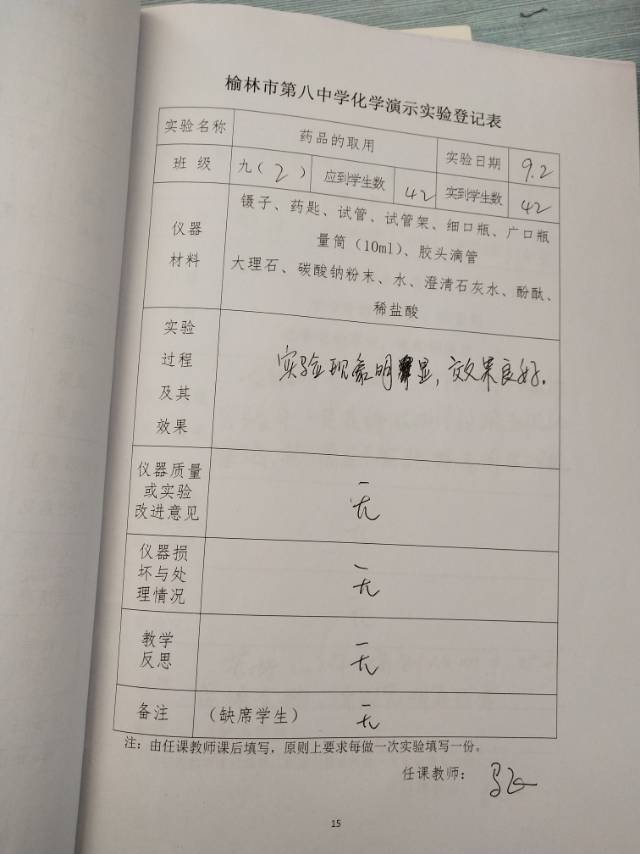 榆林市第八中学化学演示实验登记表
实验名称 药品的取用 实验日期 9.2
班 级 九（2） 应到学生数 42 实到学生数 42
仪器材料 镊子、药匙、试管、试管架、细口瓶、广口瓶
量筒（10ml）、胶头滴管
大理石、碳酸钠粉末、水、澄清石灰水、酚酞、
稀盐酸
实验
过程
及其
效果
实验现象明显，效果良好.
仪器质量
或实验
改进意见
无
仪器损
坏与处
理情况
无
教学
反思
无
备注 （缺席学生） 无
注：由任课教师课后填写，原则上要求每做一次实验填写一份。
任课教师：
15